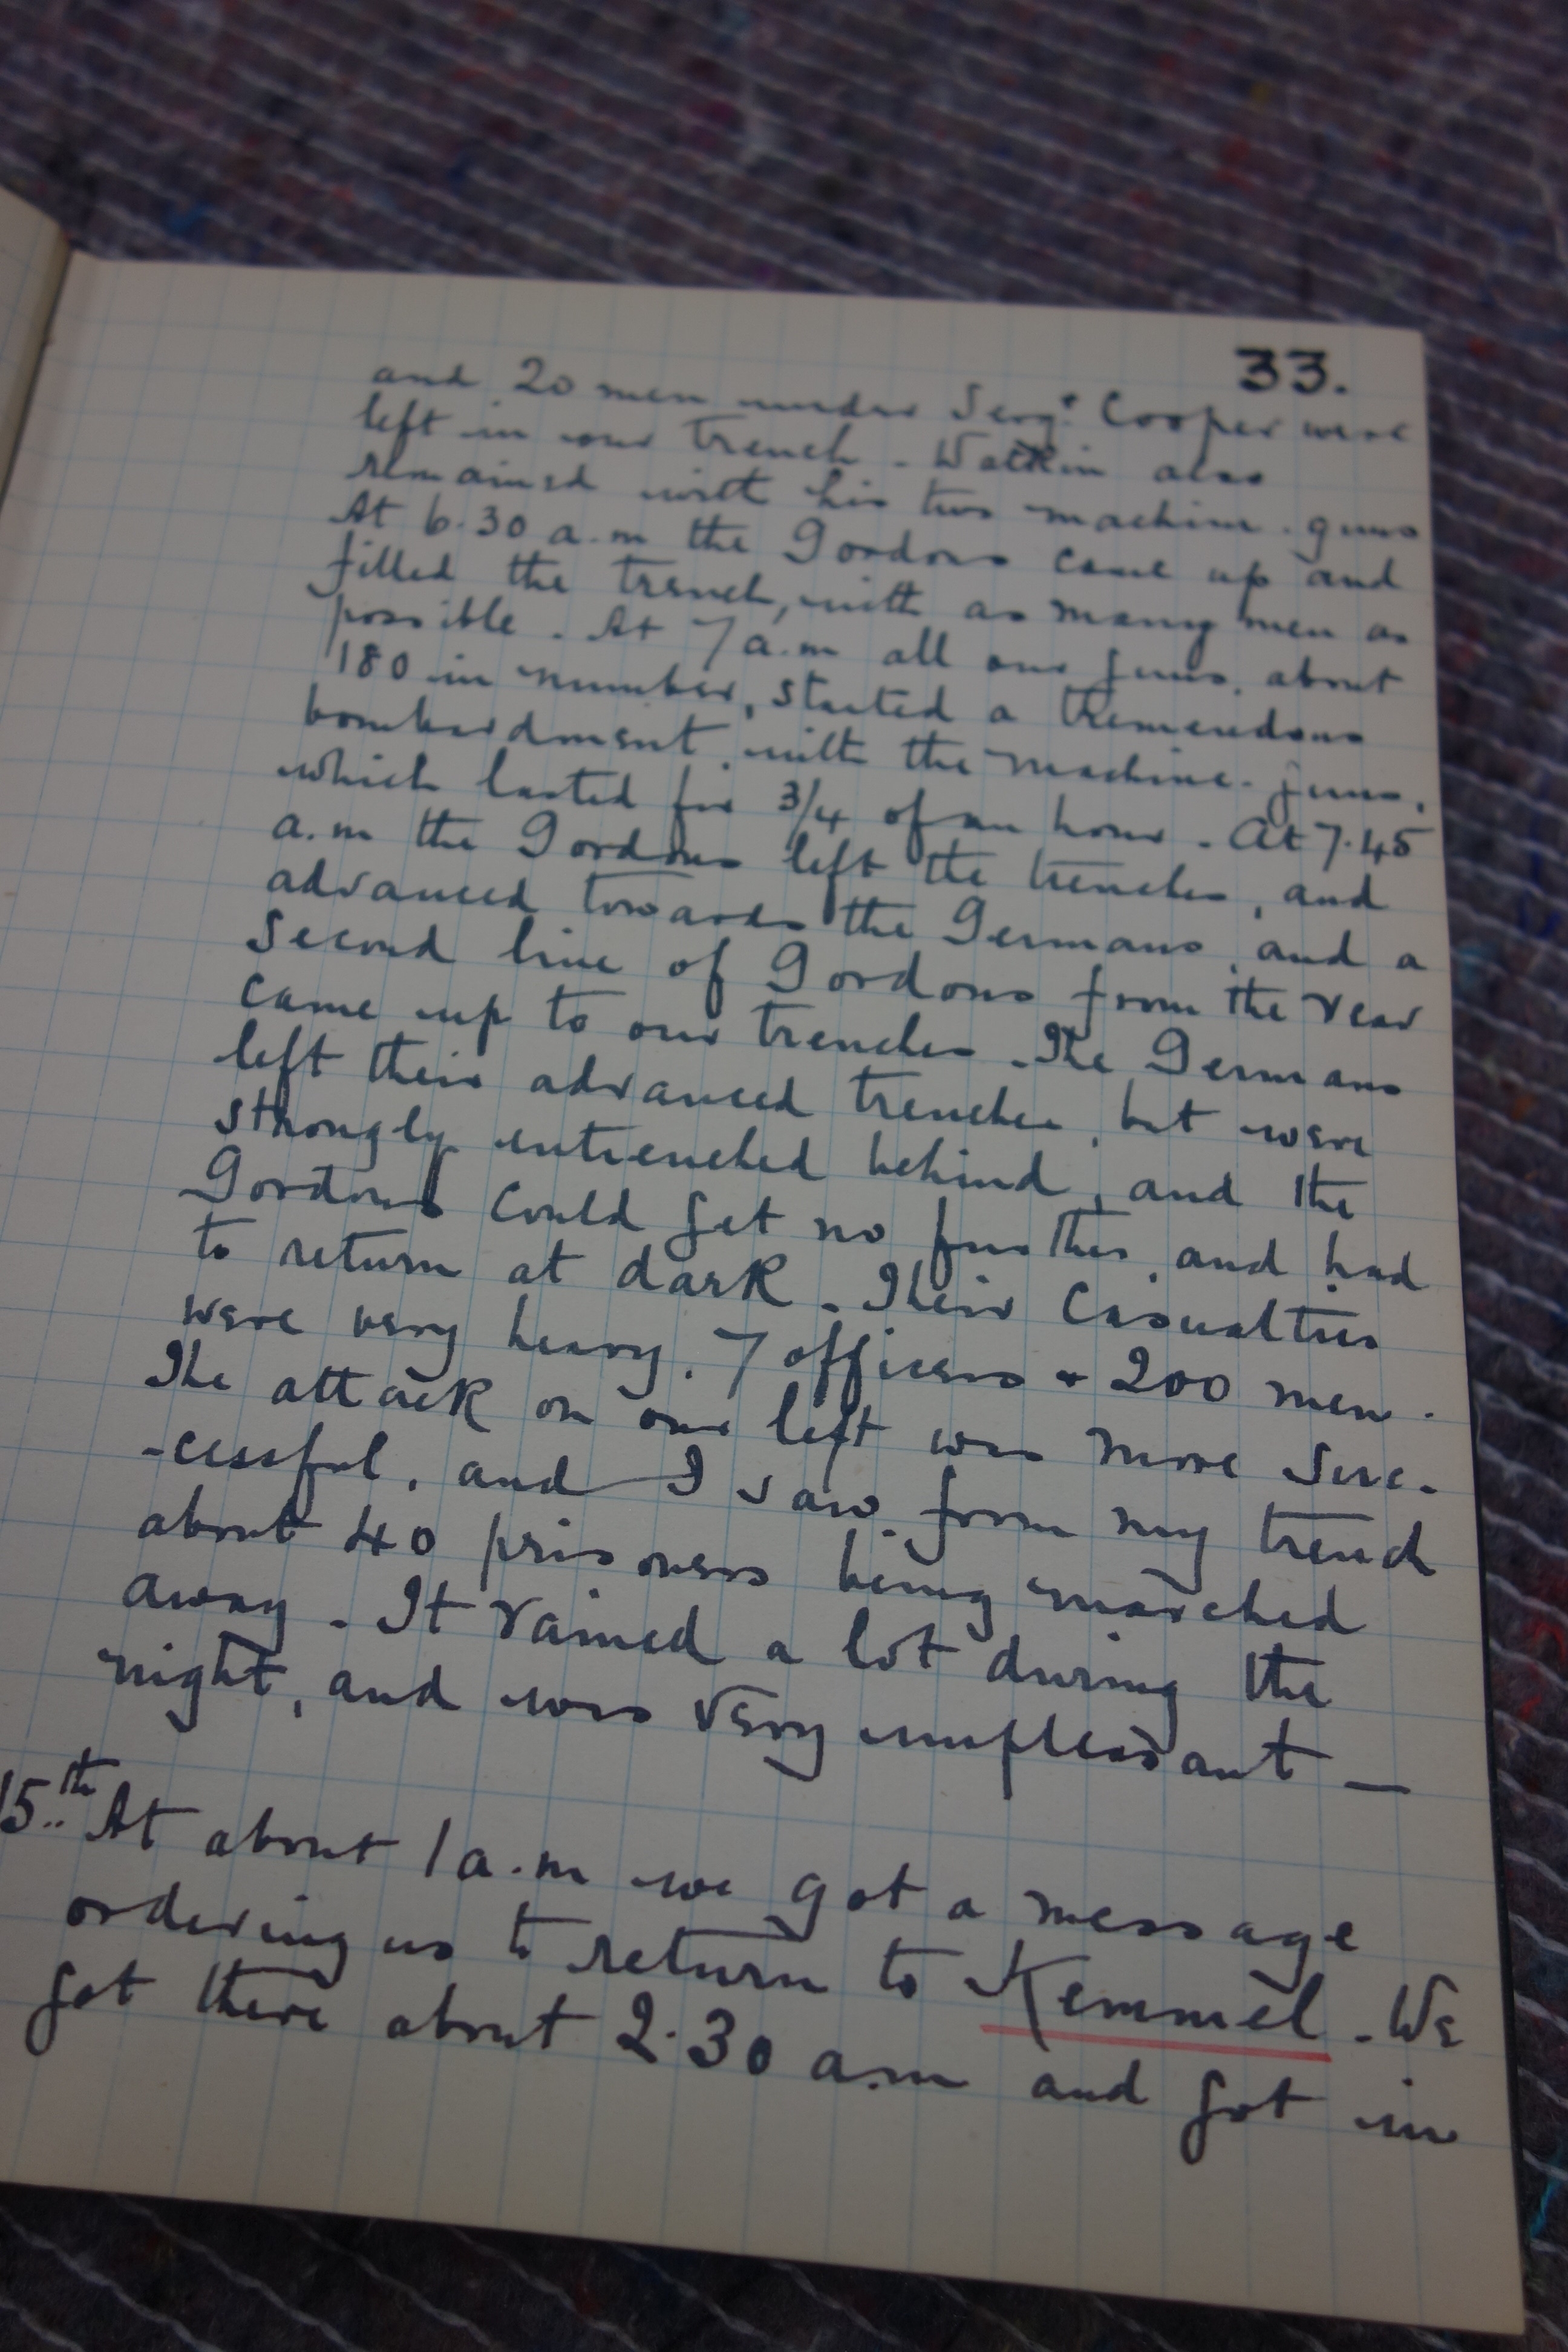 33.
and 20 men under Sergt Cooper were
left in our trench. Watkin also
remained with his two machine-guns
At 6.30 a.m the Gordons came up and
filled the trench, with as many men as
possible. At 7 a.m all our guns, about
180 in number, started a tremendous
bombardment, with the machine-guns,
which lasted for 3/4 of an hour. At 7.45
a.m the Gordons left the trenches, and
advanced towards the Germans, and a
second line of Gordons from the rear
came up to our trenches. The Germans
left their advanced trenches, but were
strongly entrenched behind, and the
Gordons could get no further, and had
to return at dark. Their casualties
were very heavy. 7 officers + 200 men.
The attack on our left was more suc-
-cessful, and I saw from my trench
about 40 prisoners being marched
away. It rained a lot during the
night, and was very unpleasant —
15th At about 1 a.m we got a message
ordering us to return to Kemmel. We
got there about 2.30 a.m and got in